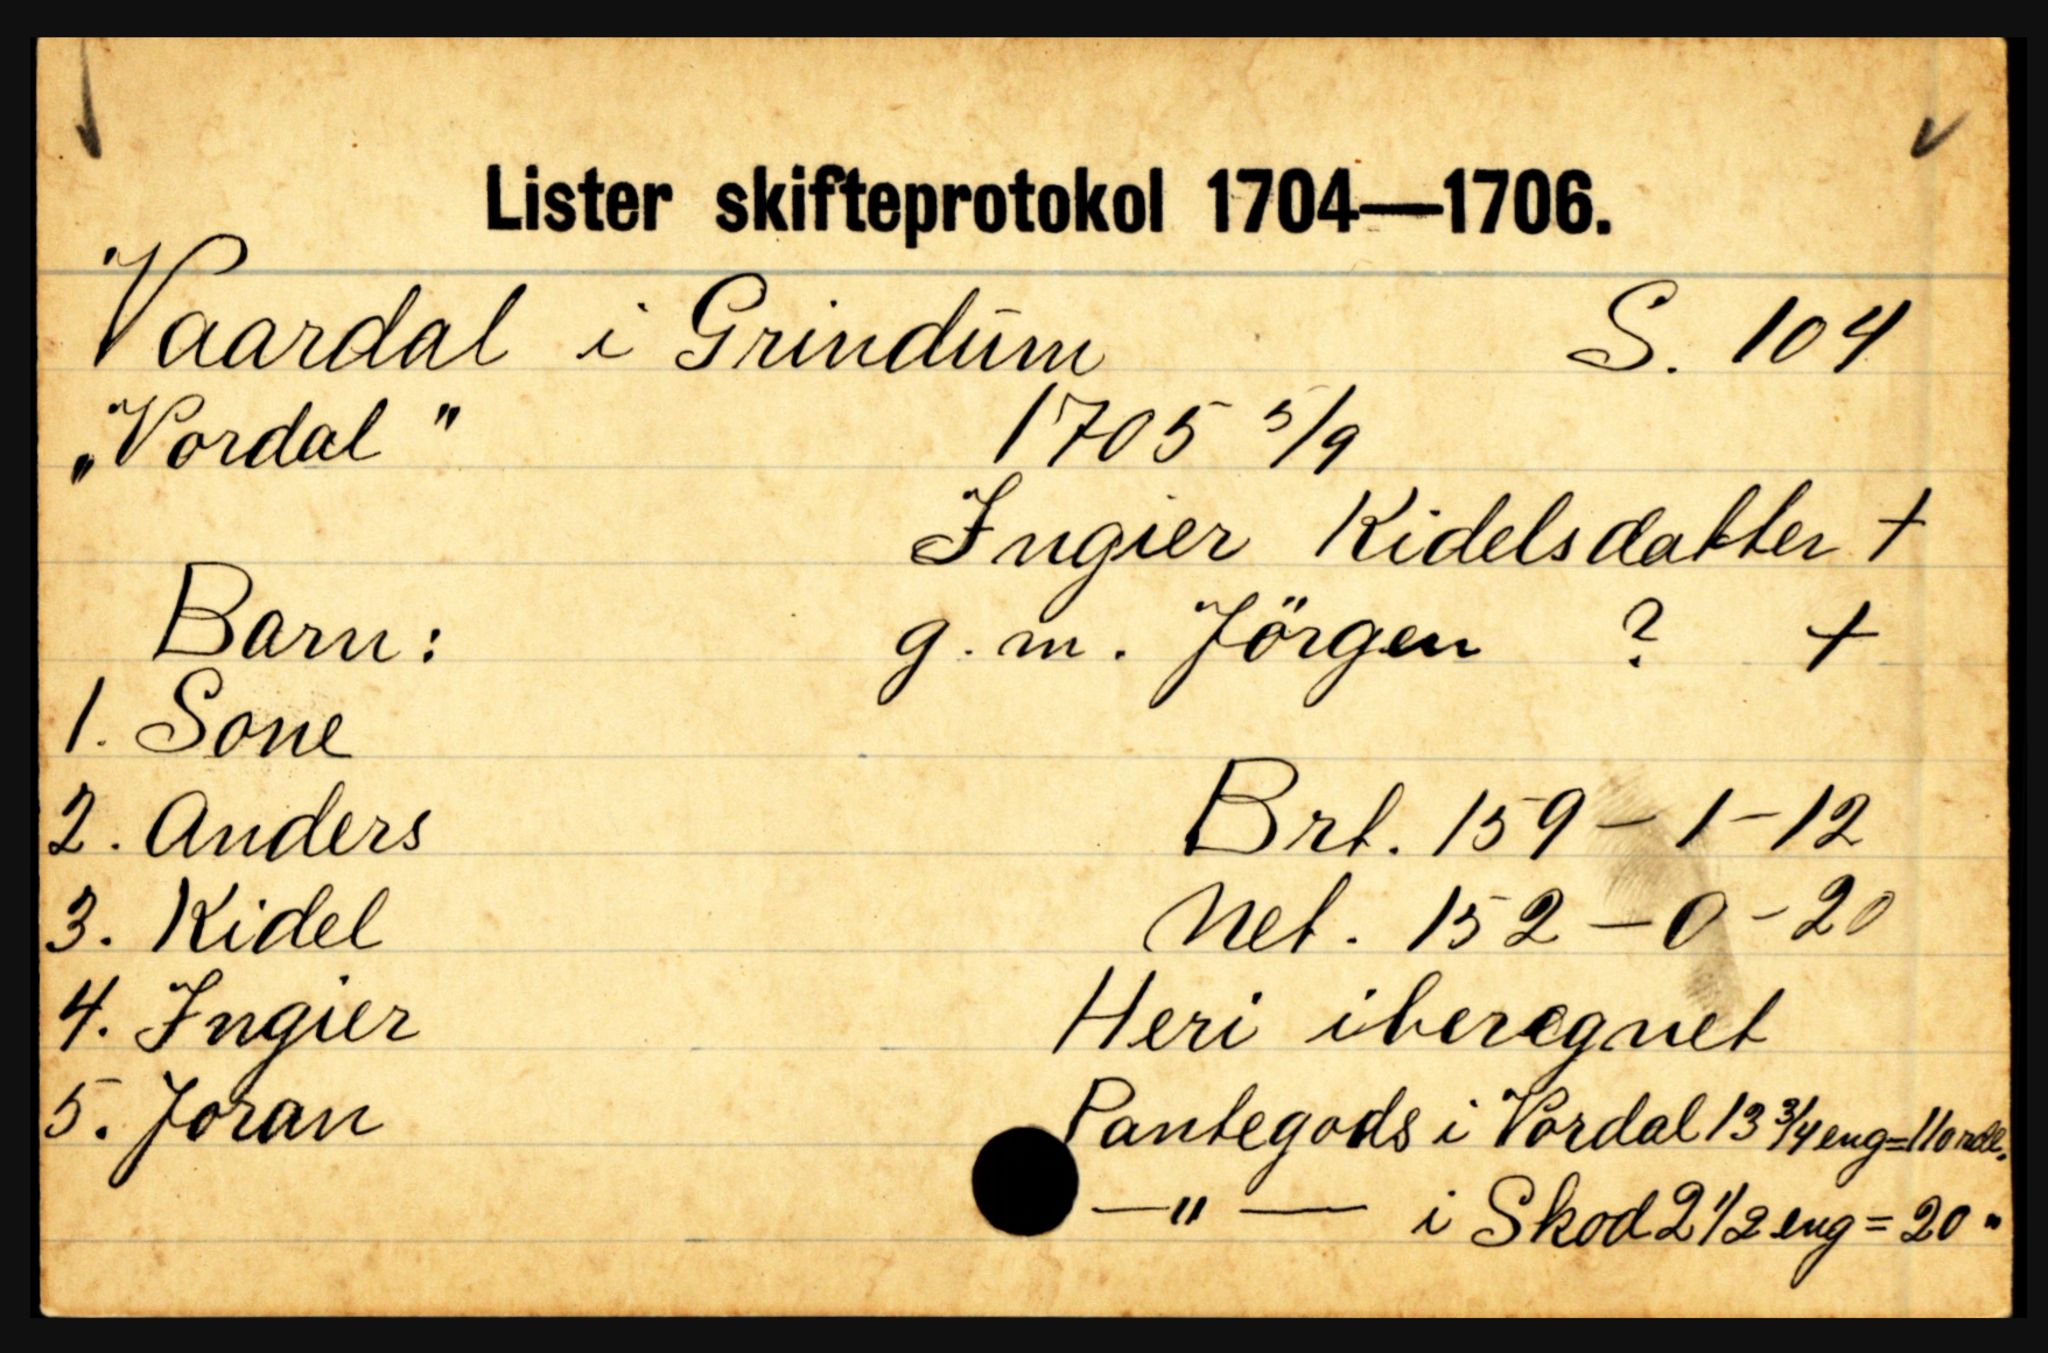 Lister skifteprotokol 1704—1706.
Vaardal i Grindum S. 104
„Vordal" 1705 5/9
Ingier Kidelsdatter +
Barn: g. m. Jörgen ? +
1. Sone
2. Anders Brt. 159 – 1 – 12
3. Kidel Net. 152 – 0 – 20
4. Ingier Heri iberegnet
5. Joran Pantegods i Vordal 13 3/4 eng = 110 rdl.
—"— i Skod 2 1/2 eng = 20 "